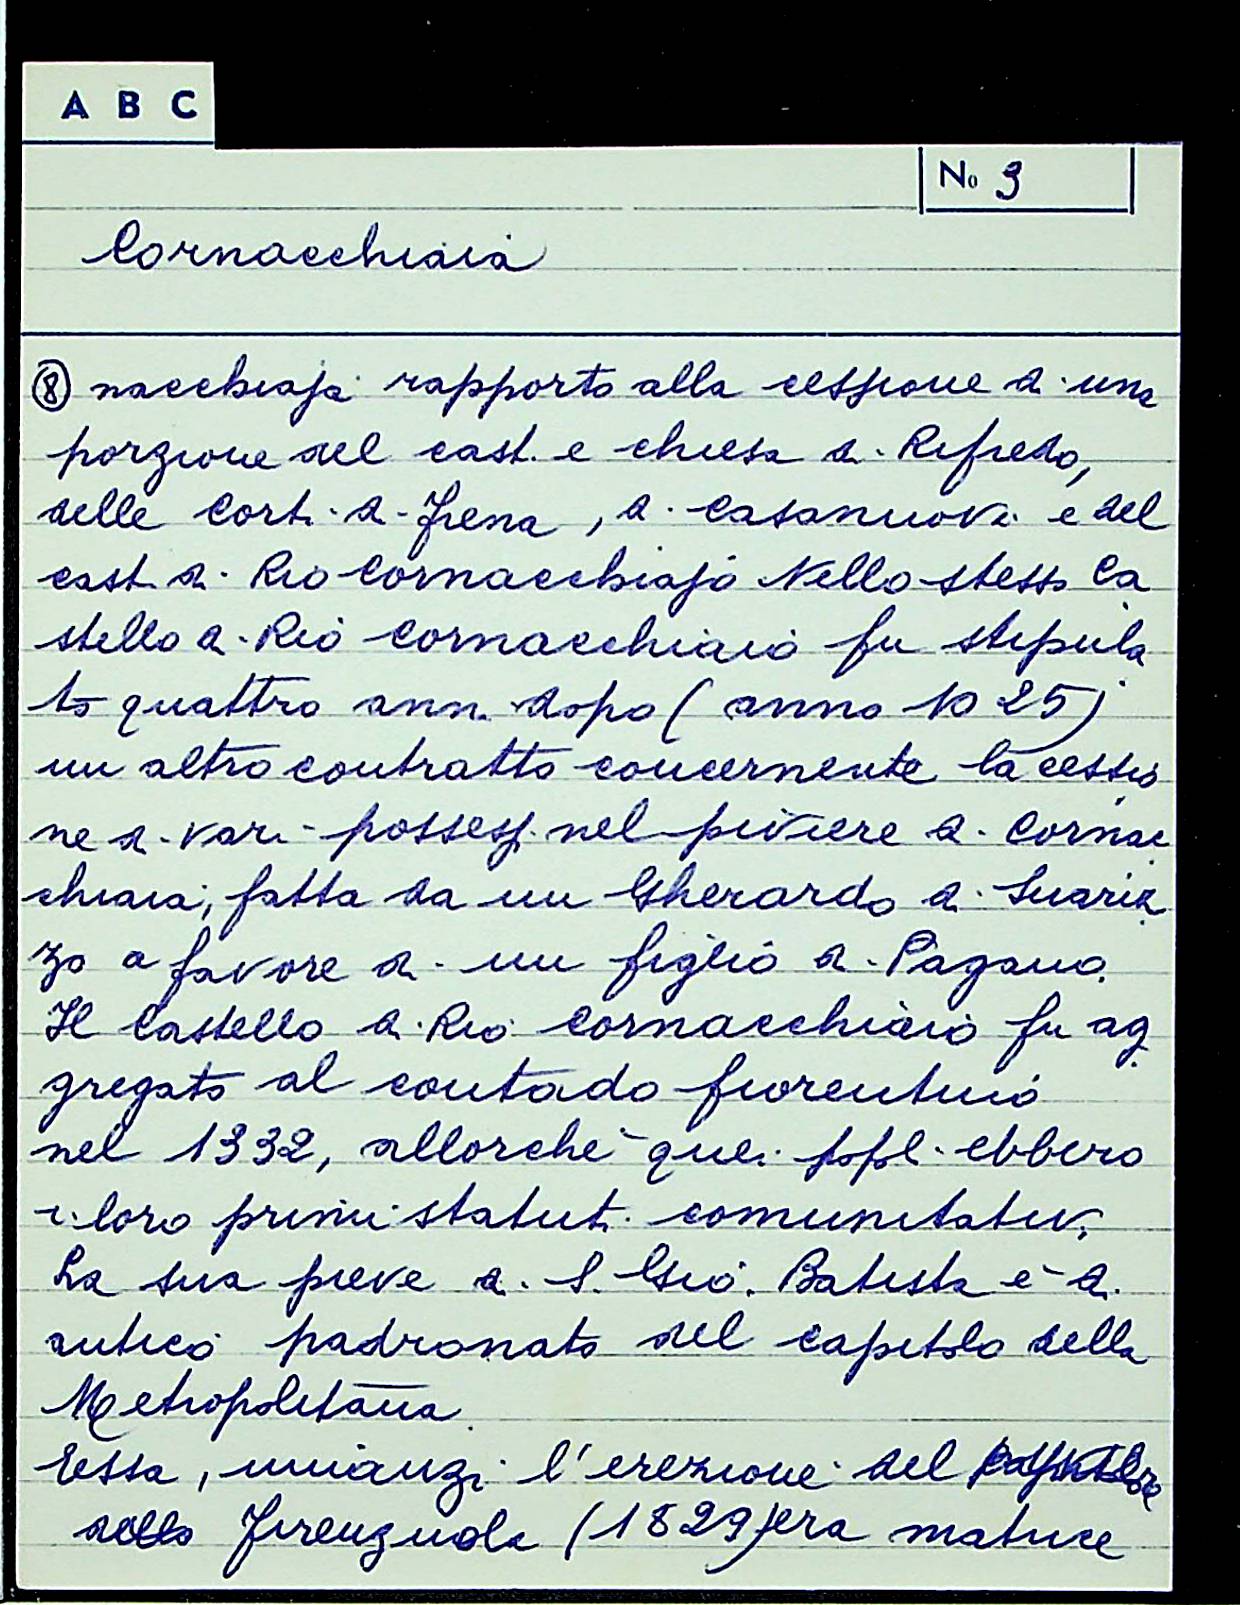 A B C
No 3
Cornacchiaia
⑧ nacchiaja rapporto alla cessione di una
porzione del cast. e chiesa di Rifredo,
delle Corti di Frena, di Casanuova e del
cast. di Rio Cornacchiajo Nello stesso Ca
stello di Rio Cornacchiaio fu stipula
to quattro anni dopo (anno 1025)
un altro contratto concernente la cessio
ne di vari possessi nel piviere di Cornac
chiaia, fatta da un Gherardo di Suariz
zo a favore di un figlio di Pagano.
Il Castello di Rio Cornacchiaio fu ag
gregato al contado fiorentino
nel 1332, allorchè quei popoli ebbero
i loro primi statuti comunitativi
La sua pieve di S. Gio. Batista è di
antico padronato del capitolo della
Metropolitana
Essa, innanzi l'erezione del
Firenzuola (1829) era matrice